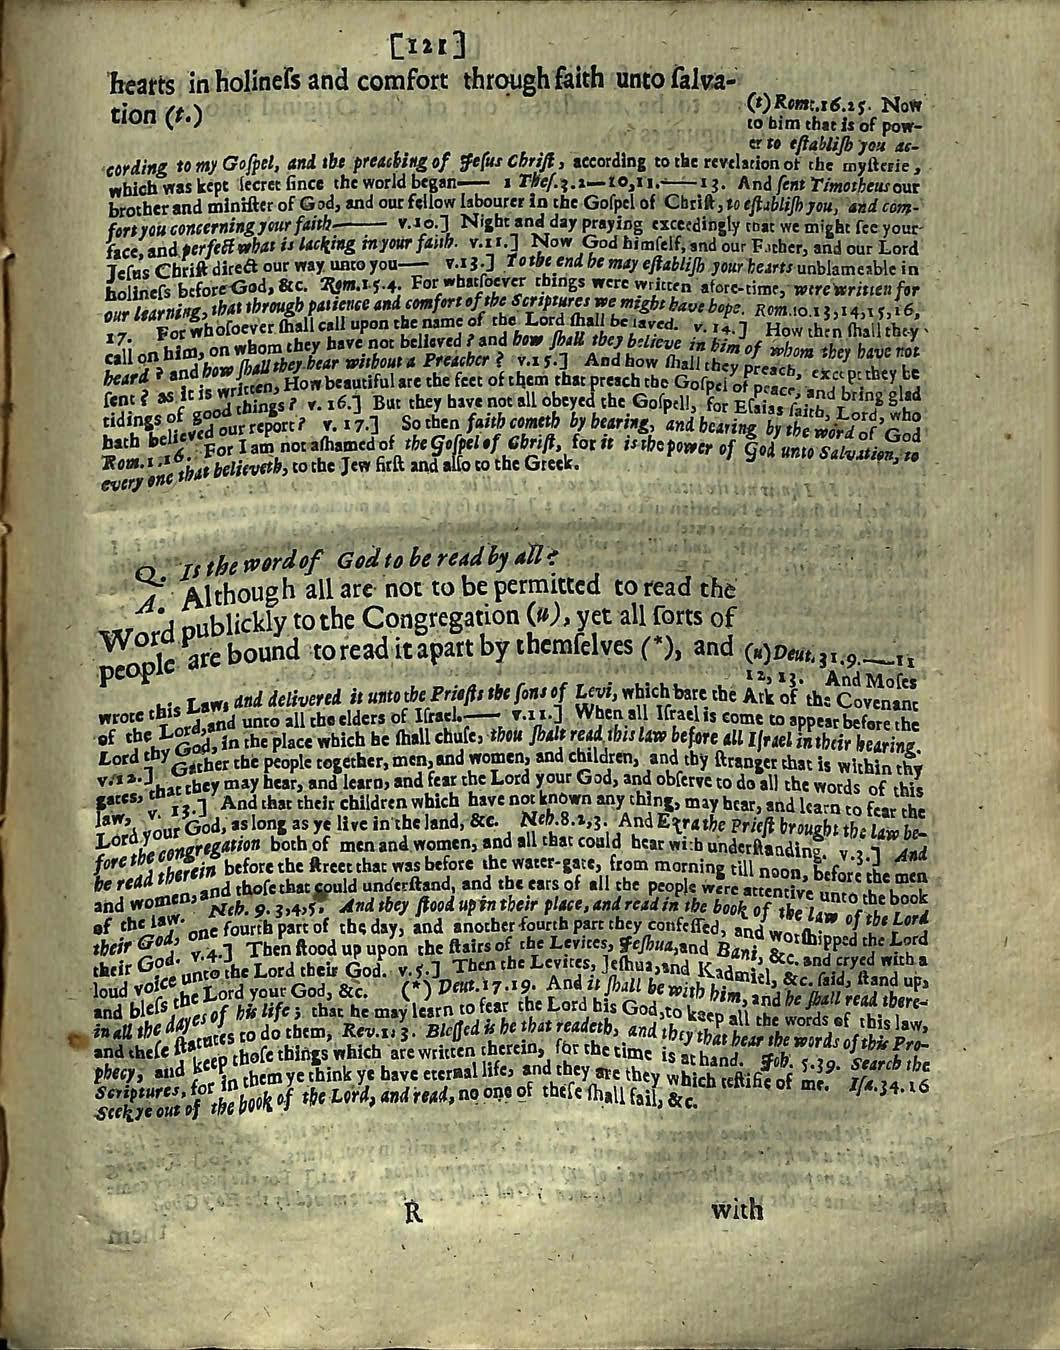 [121]
hearts in holineſs and comfort through faith unto ſalva-
tion (t.)
(t) Rom.16.25. Now
to him that is of pow-
er to eſtabliſh you ac-
cording to my Goſpel, and the preaching of Jeſus Chriſt, according to the revelation of the myſterie,
which was kept ſecret ſince the world began—— 1 Theſ.3.2—10,11.——13. And ſent Timotheus our
brother and miniſter of God, and our fellow labourer in the Goſpel of Chriſt, to eſtabliſh you, and com-
fort you concerning your faith—— v.10.] Night and day praying exceedingly that we might ſee your
face, and perfect what is lacking in your faith. v.11.] Now God himſelf, and our Father, and our Lord
Jeſus Chriſt direct our way unto you—— v.13.] To the end he may eſtabliſh your hearts unblameable in
holineſs before God, &c. Rom.15.4. For whatſoever things were written afore-time, were written for
our learning, that through patience and comfort of the Scriptures we might have hope. Rom.10.13,14,15,16,
17. For whoſoever ſhall call upon the name of the Lord ſhall be ſaved. v. 14.] How then ſhall they
call on him, on whom they have not believed? and how ſhall they believe in him of whom they have not
heard? and how ſhall they hear without a Preacher? v.15.] And how ſhall they preach, except they be
ſent? as it is written, How beautiful are the feet of them that preach the Goſpel of peace, and bring glad
tidings of good things? v. 16.] But they have not all obeyed the Goſpell, for Eſaias ſaith, Lord, who
hath believed our report? v. 17.] So then faith cometh by hearing, and hearing by the word of God
Rom.1.16. For I am not aſhamed of the Goſpel of Chriſt, for it is the power of God unto Salvation, to
every one that believeth, to the Jew firſt and alſo to the Greek.
Q. Is the word of God to be read by all?
A. Although all are not to be permitted to read the
Word publickly to the Congregation (u), yet all ſorts of
people are bound to read it apart by themſelves (*), and
(u) Deut.31.9.——11
12,13. And Moſes
wrote this Law, and delivered it unto the Prieſts the ſons of Levi, which bare the Ark of the Covenant
of the Lord, and unto all the elders of Iſrael.—— v.11.] When all Iſrael is come to appear before the
Lord thy God, in the place which he ſhall chuſe, thou ſhalt read this law before all Iſrael in their hearing.
v.12.] Gather the people together, men, and women, and children, and thy ſtranger that is within thy
gates, that they may hear, and learn, and fear the Lord your God, and obſerve to do all the words of this
law, v. 13.] And that their children which have not known any thing, may hear, and learn to fear the
Lord your God, as long as ye live in the land, &c. Neh.8.2,3. And Ezra the Prieſt brought the law be-
fore the congregation both of men and women, and all that could hear with underſtanding. v.3.] And
he read therein before the ſtreet that was before the water-gate, from morning till noon, before the men
and women, and thoſe that could underſtand, and the ears of all the people were attentive unto the book
of the law. Neh. 9. 3,4,5. And they ſtood up in their place, and read in the book of the law of the Lord
their God, one fourth part of the day, and another fourth part they confeſſed, and worſhipped the Lord
their God. v.4.] Then ſtood up upon the ſtairs of the Levites, Jeſhua, and Bani, &c. and cryed with a
loud voice unto the Lord their God. v.5.] Then the Levites, Jeſhua, and Kadmiel, &c. ſaid, ſtand up,
and bleſs the Lord your God, &c. (*) Deut.17.19. And it ſhall be with him, and he ſhall read there-
in all the dayes of his life; that he may learn to fear the Lord his God, to keep all the words of this law,
and theſe ſtatutes to do them, Rev.1.3. Bleſſed is he that readeth, and they that hear the words of this Pro-
phecy, and keep thoſe things which are written therein, for the time is at hand. Joh. 5.39. Search the
Scriptures, for in them ye think ye have eternal life, and they are they which teſtifie of me. Iſa.34.16
Seek ye out of the book of the Lord, and read, no one of theſe ſhall fail, &c.
R with